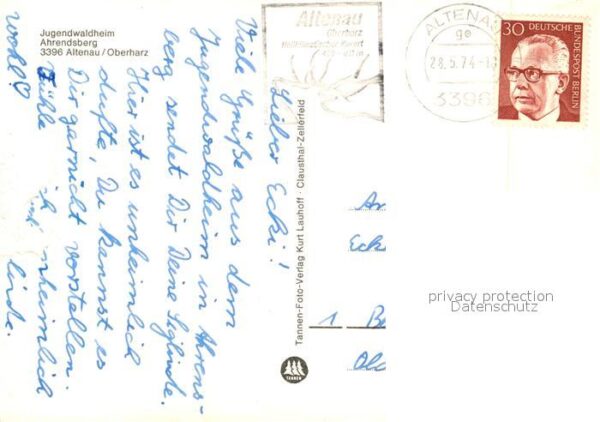 Jugendwaldheim
Ahrendsberg
3396 Altenau / Oberharz
Altenau
Oberharz
Heilklimatischer Kurort
ALTENAU
ge
28.5.74-1
3396
30 DEUTSCHE
BUNDESPOST BERLIN
Lieber Ecki!
Viele Grüße aus dem
Jugendwaldheim in Ahrens-
berg sendet Dir Deine Seglinde.
Hier ist es unheimlich
dufte, Du kannst es
Dir garnicht vorstellen.
Fühle ich unheimlich
wohl!
linde.
Tannen-Foto-Verlag Kurt Lauhoff · Clausthal-Zellerfeld
TANNEN
An
Eck
1 B
Ol
privacy protection
Datenschutz